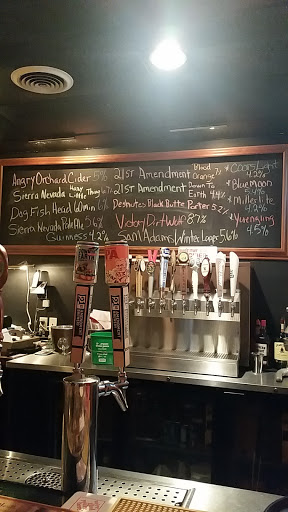 Angry Orchard Cider 5%
Sierra Nevada Hazy Little Thing 6.7%
Dog Fish Head 60 Min 6%
Sierra Nevada Pale Ale 5.6%
Guinness 4.2%
21st Amendment Blood Orange 7%
21st Amendment Down To Earth 4.4%
Deshutes Black Butte Porter 5.2%
Victory Dirt Wolf 8.7%
Sam Adams Winter Lager 5.6%
Coors Light 4.2%
Blue moon 5.4%
Miller lite 4.2%
Yuengling 4.5%